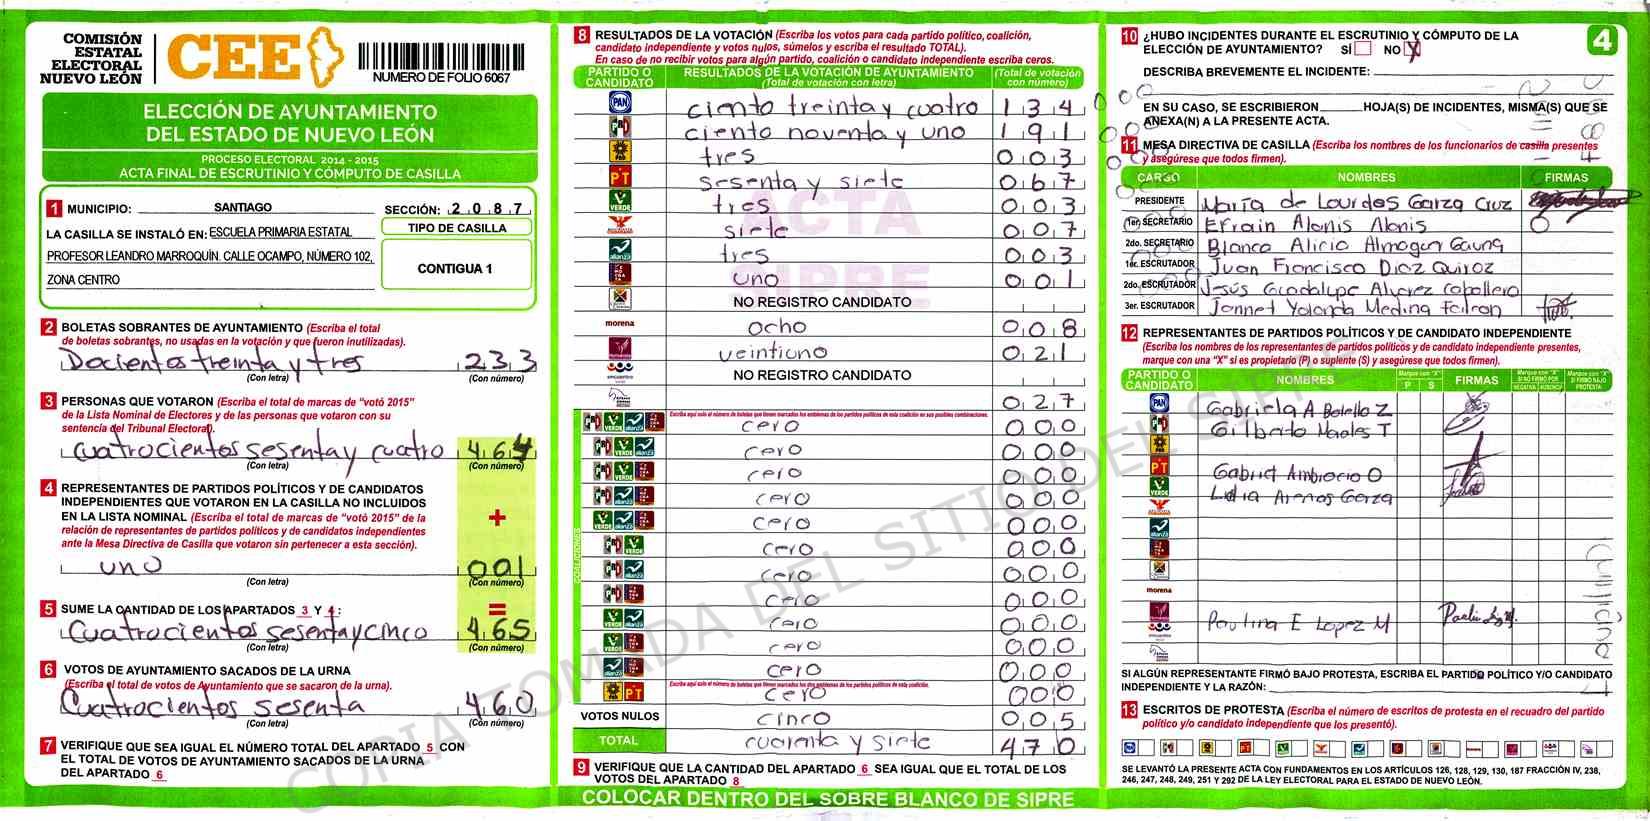 COMISIÓN
ESTATAL
ELECTORAL
NUEVO LEÓN
CEE
NUMERO DE FOLIO 6067
ELECCIÓN DE AYUNTAMIENTO
DEL ESTADO DE NUEVO LEÓN
PROCESO ELECTORAL 2014 - 2015
ACTA FINAL DE ESCRUTINIO Y CÓMPUTO DE CASILLA
1 MUNICIPIO: SANTIAGO SECCIÓN: 2 0 8 7
LA CASILLA SE INSTALÓ EN: ESCUELA PRIMARIA ESTATAL
PROFESOR LEANDRO MARROQUÍN. CALLE OCAMPO, NÚMERO 102,
ZONA CENTRO
TIPO DE CASILLA
CONTIGUA 1
2 BOLETAS SOBRANTES DE AYUNTAMIENTO (Escriba el total
de boletas sobrantes, no usadas en la votación y que fueron inutilizadas).
Docientos treinta y tres 2 3 3
(Con letra) (Con número)
3 PERSONAS QUE VOTARON (Escriba el total de marcas de "votó 2015"
de la Lista Nominal de Electores y de las personas que votaron con su
sentencia del Tribunal Electoral).
Cuatrocientos sesenta y cuatro 4 6 4
(Con letra) (Con número)
4 REPRESENTANTES DE PARTIDOS POLÍTICOS Y DE CANDIDATOS
INDEPENDIENTES QUE VOTARON EN LA CASILLA NO INCLUIDOS
EN LA LISTA NOMINAL (Escriba el total de marcas de "votó 2015" de la
relación de representantes de partidos políticos y de candidatos independientes
ante la Mesa Directiva de Casilla que votaron sin pertenecer a esta sección).
+
uno 0 0 1
(Con letra) (Con número)
5 SUME LA CANTIDAD DE LOS APARTADOS 3 Y 4:
=
Cuatrocientos sesenta y cinco 4 6 5
(Con letra) (Con número)
6 VOTOS DE AYUNTAMIENTO SACADOS DE LA URNA
(Escriba el total de votos de Ayuntamiento que se sacaron de la urna).
Cuatrocientos sesenta 4 6 0
(Con letra) (Con número)
7 VERIFIQUE QUE SEA IGUAL EL NÚMERO TOTAL DEL APARTADO 5 CON
EL TOTAL DE VOTOS DE AYUNTAMIENTO SACADOS DE LA URNA
DEL APARTADO 6
8 RESULTADOS DE LA VOTACIÓN (Escriba los votos para cada partido político, coalición,
candidato independiente y votos nulos, súmelos y escriba el resultado TOTAL).
En caso de no recibir votos para algún partido, coalición o candidato independiente escriba ceros.
PARTIDO O CANDIDATO RESULTADOS DE LA VOTACIÓN DE AYUNTAMIENTO (Total de votación con letra) (Total de votación con número)
PAN ciento treinta y cuatro 1 3 4
PRD ciento noventa y uno 1 9 1
PRD tres 0 0 3
PT sesenta y siete 0 6 7
VERDE tres 0 0 3
siete 0 0 7
alianza tres 0 0 3
uno 0 0 1
NO REGISTRO CANDIDATO
morena ocho 0 0 8
veintiuno 0 2 1
encuentro NO REGISTRO CANDIDATO
0 2 7
Escriba aquí solo el número de boletas que tienen marcados los emblemas de los partidos políticos de esta coalición en sus posibles combinaciones.
cero 0 0 0
cero 0 0 0
cero 0 0 0
cero 0 0 0
cero 0 0 0
cero 0 0 0
cero 0 0 0
cero 0 0 0
cero 0 0 0
cero 0 0 0
cero 0 0 0
Escriba aquí solo el número de boletas que tienen marcados los dos emblemas de los partidos políticos de esta coalición.
PT cero 0 0 0
VOTOS NULOS cinco 0 0 5
TOTAL cuarenta y siete 4 7 0
9 VERIFIQUE QUE LA CANTIDAD DEL APARTADO 6 SEA IGUAL QUE EL TOTAL DE LOS
VOTOS DEL APARTADO 8
COLOCAR DENTRO DEL SOBRE BLANCO DE SIPRE
ACTA
SIPRE
COPIA TOMADA DEL SITIO DEL SIPRE
10 ¿HUBO INCIDENTES DURANTE EL ESCRUTINIO Y CÓMPUTO DE LA
ELECCIÓN DE AYUNTAMIENTO? SÍ NO X
4
DESCRIBA BREVEMENTE EL INCIDENTE:
EN SU CASO, SE ESCRIBIERON HOJA(S) DE INCIDENTES, MISMA(S) QUE SE
ANEXA(N) A LA PRESENTE ACTA.
11 MESA DIRECTIVA DE CASILLA (Escriba los nombres de los funcionarios de casilla presentes
y asegúrese que todos firmen).
CARGO NOMBRES FIRMAS
PRESIDENTE María de Lourdes Garza Cruz
1er. SECRETARIO Efrain Alanis Alanis
2do. SECRETARIO Blanca Alicia Almaguer
1er. ESCRUTADOR Juan Francisco Diaz Quiroz
2do. ESCRUTADOR Jesús Guadalupe Alvarez Caballero
3er. ESCRUTADOR Jannet Yolanda Medina Falcon
12 REPRESENTANTES DE PARTIDOS POLÍTICOS Y DE CANDIDATO INDEPENDIENTE
(Escriba los nombres de los representantes de partidos políticos y de candidato independiente presentes,
marque con una "X" si es propietario (P) o suplente (S) y asegúrese que todos firmen).
PARTIDO O CANDIDATO NOMBRES Marque con "X" P S FIRMAS Marque con "X" SI NO FIRMÓ POR NEGATIVA AUSENCIA Marque con "X" SI FIRMÓ BAJO PROTESTA
PAN Gabriela A Botello Z
Gilberto T
PT Gabriel Ambrocio O
VERDE Lidia Arenas Garza
morena
Paulina E Lopez M
SI ALGÚN REPRESENTANTE FIRMÓ BAJO PROTESTA, ESCRIBA EL PARTIDO POLÍTICO Y/O CANDIDATO
INDEPENDIENTE Y LA RAZÓN:
13 ESCRITOS DE PROTESTA (Escriba el número de escritos de protesta en el recuadro del partido
político y/o candidato independiente que los presentó).
SE LEVANTÓ LA PRESENTE ACTA CON FUNDAMENTOS EN LOS ARTÍCULOS 126, 128, 129, 130, 187 FRACCIÓN IV, 238,
246, 247, 248, 249, 251 Y 292 DE LA LEY ELECTORAL PARA EL ESTADO DE NUEVO LEÓN.